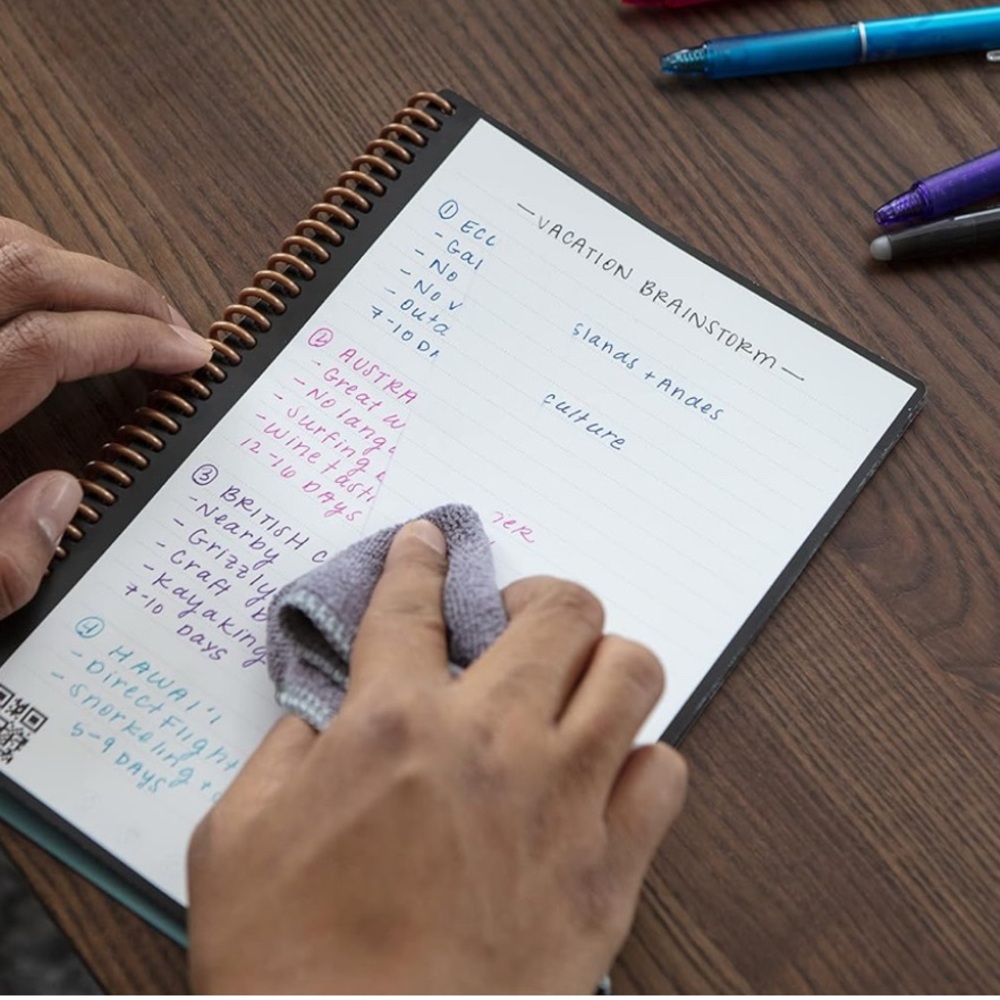 — VACATION BRAINSTORM —
① ECU
- Gal slands + Andes
- No
- No v culture
- Outa
7-10 DA
② AUSTRA
- Great W
- No lang
- Surfing
- Wine tast
12-16 DAYS
IER
③ BRITISH C
- Nearby
- Grizzly
- Craft b
- Kayaking
7-10 Days
④ HAWAI'I
- Direct Flight
- Snorkeling +
5-9 DAYS